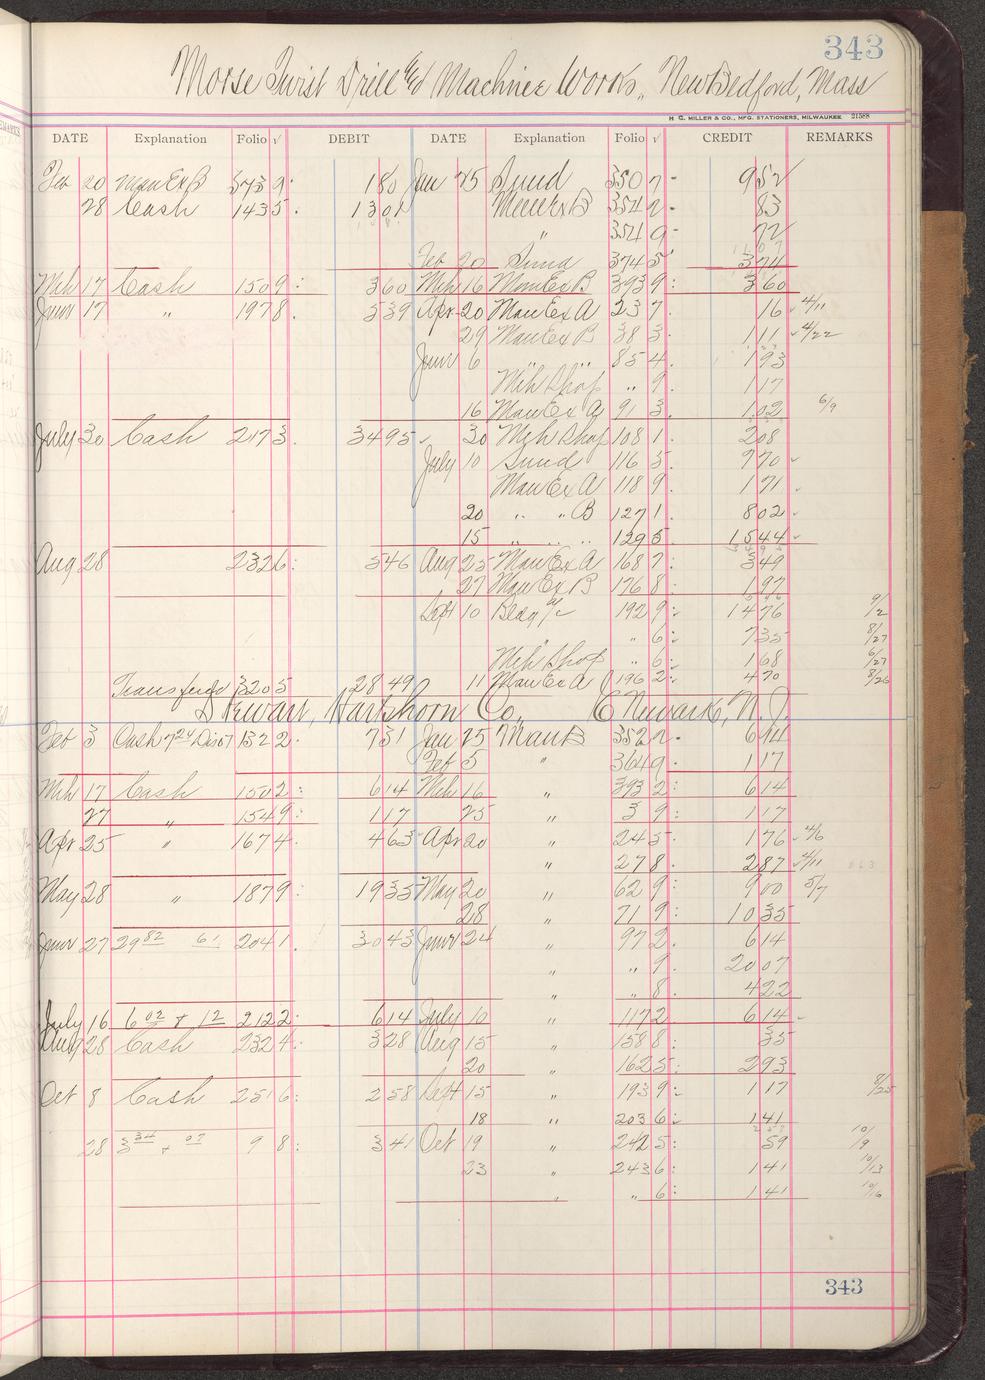 343
Morse Twist Drill and Machine Works, New Bedford, Mass
H. C. MILLER & CO., MFG. STATIONERS, MILWAUKEE 21588
DATE Explanation Folio √ DEBIT DATE Explanation Folio √ CREDIT REMARKS
Feb 20 Man Ex B 3739 180 Jan 25 Sund 3507 952
28 Cash 1435 1301 Man Ex B 3542 83
" 3549 72
1107
Feb 20 Sund 3745 374
Mch 17 Cash 1509 360 Mch 16 Man Ex B 3939 360
June 17 " 1978 539 Apr 20 Man Ex A 237 16 4/11
29 Man Ex B 383 111 4/22
June 6 " " 854 193
Mch Shop " 9 117
16 Man Ex A 913 102 6/9
July 30 Cash 2173 3495 30 Mch Shop 1081 208
July 10 Sund 1165 770
Man Ex A 1189 171
20 " " B 1271 802
15 " " " 1295 1544
Aug 28 2326 546 Aug 25 Man Ex A 1687 349
27 Man Ex B 1768 197
Sept 10 Bldg a/c 1929 1476 9/2
" " 6 735 8/27
Mch Shop " 6 168 6/27
Transferd 3205 2849 11 Man Ex A 1962 470 8/26
Stewart, Hartshorn Co., E Newark, N.J.
Feb 3 Cash 7 24 Dis 07 1322 731 Jan 25 Man B 3522 614
Feb 5 " 3649 117
Mch 17 Cash 1502 614 Mch 16 " 3932 614
27 " 1549 117 25 " 39 117
Apr 25 " 1674 463 Apr 20 " 245 176 4/6
" 278 287 4/11
May 28 " 1879 1935 May 20 " 629 900 5/7
28 " 719 1035
June 27 29 82 61 2041 3043 June 24 " 972 614
" " 9 2007
" " 8 422
July 16 6 02 + 12 2122 614 July 10 " 1172 614
Aug 28 Cash 2324 328 Aug 15 " 1588 35
20 " 1625 293
Oct 8 Cash 2516 258 Sept 15 " 1939 117 8/25
18 " 2036 141
28 3 34 + 07 98 341 Oct 19 " 2425 59 10/9
23 " 2436 141 10/13
" " 6 141 10/16
343